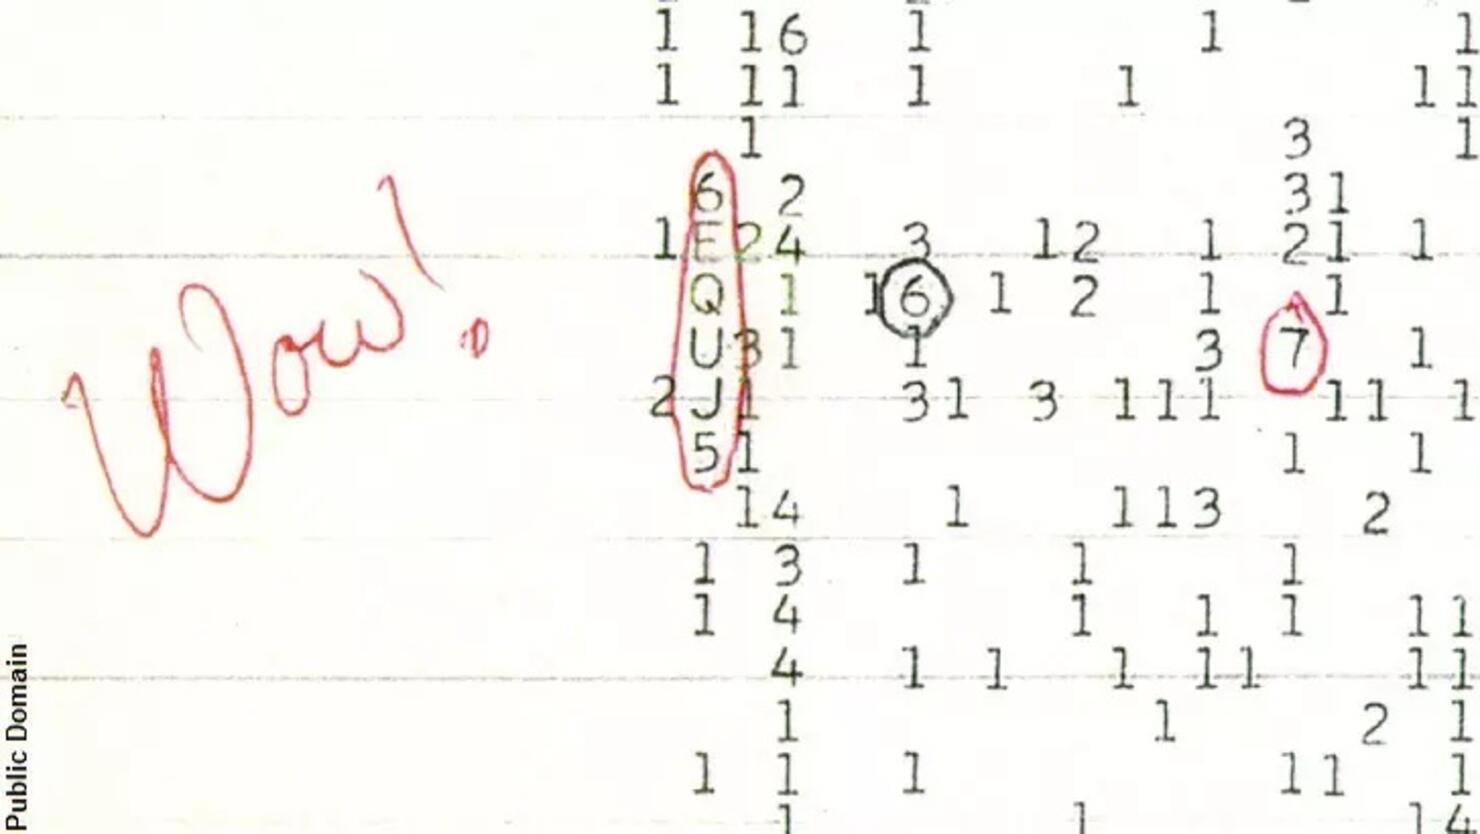 1 16 1 1 1
1 11 1 1 11
1 3 1
6 2 31
1E24 3 12 1 21 1
Q 1 16 1 2 1 1
U31 1 3 7 1
2J1 31 3 111 11 1
51 1 1
14 1 113 2
1 3 1 1 1
1 4 1 1 1 11
4 1 1 1 11 11
1 1 2 1
1 1 1 11 1
1 1 14
Wow!
Public Domain